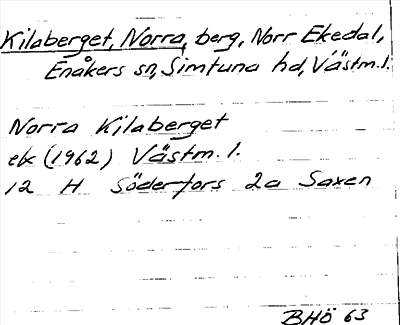 Kilaberget, Norra, berg, Norr Ekedal,
Enåkers sn, Simtuna hd, Västm. l.
Norra Kilaberget
ek (1962) Västm. l.
12 H Söderfors 2a Saxen
BHÖ 63